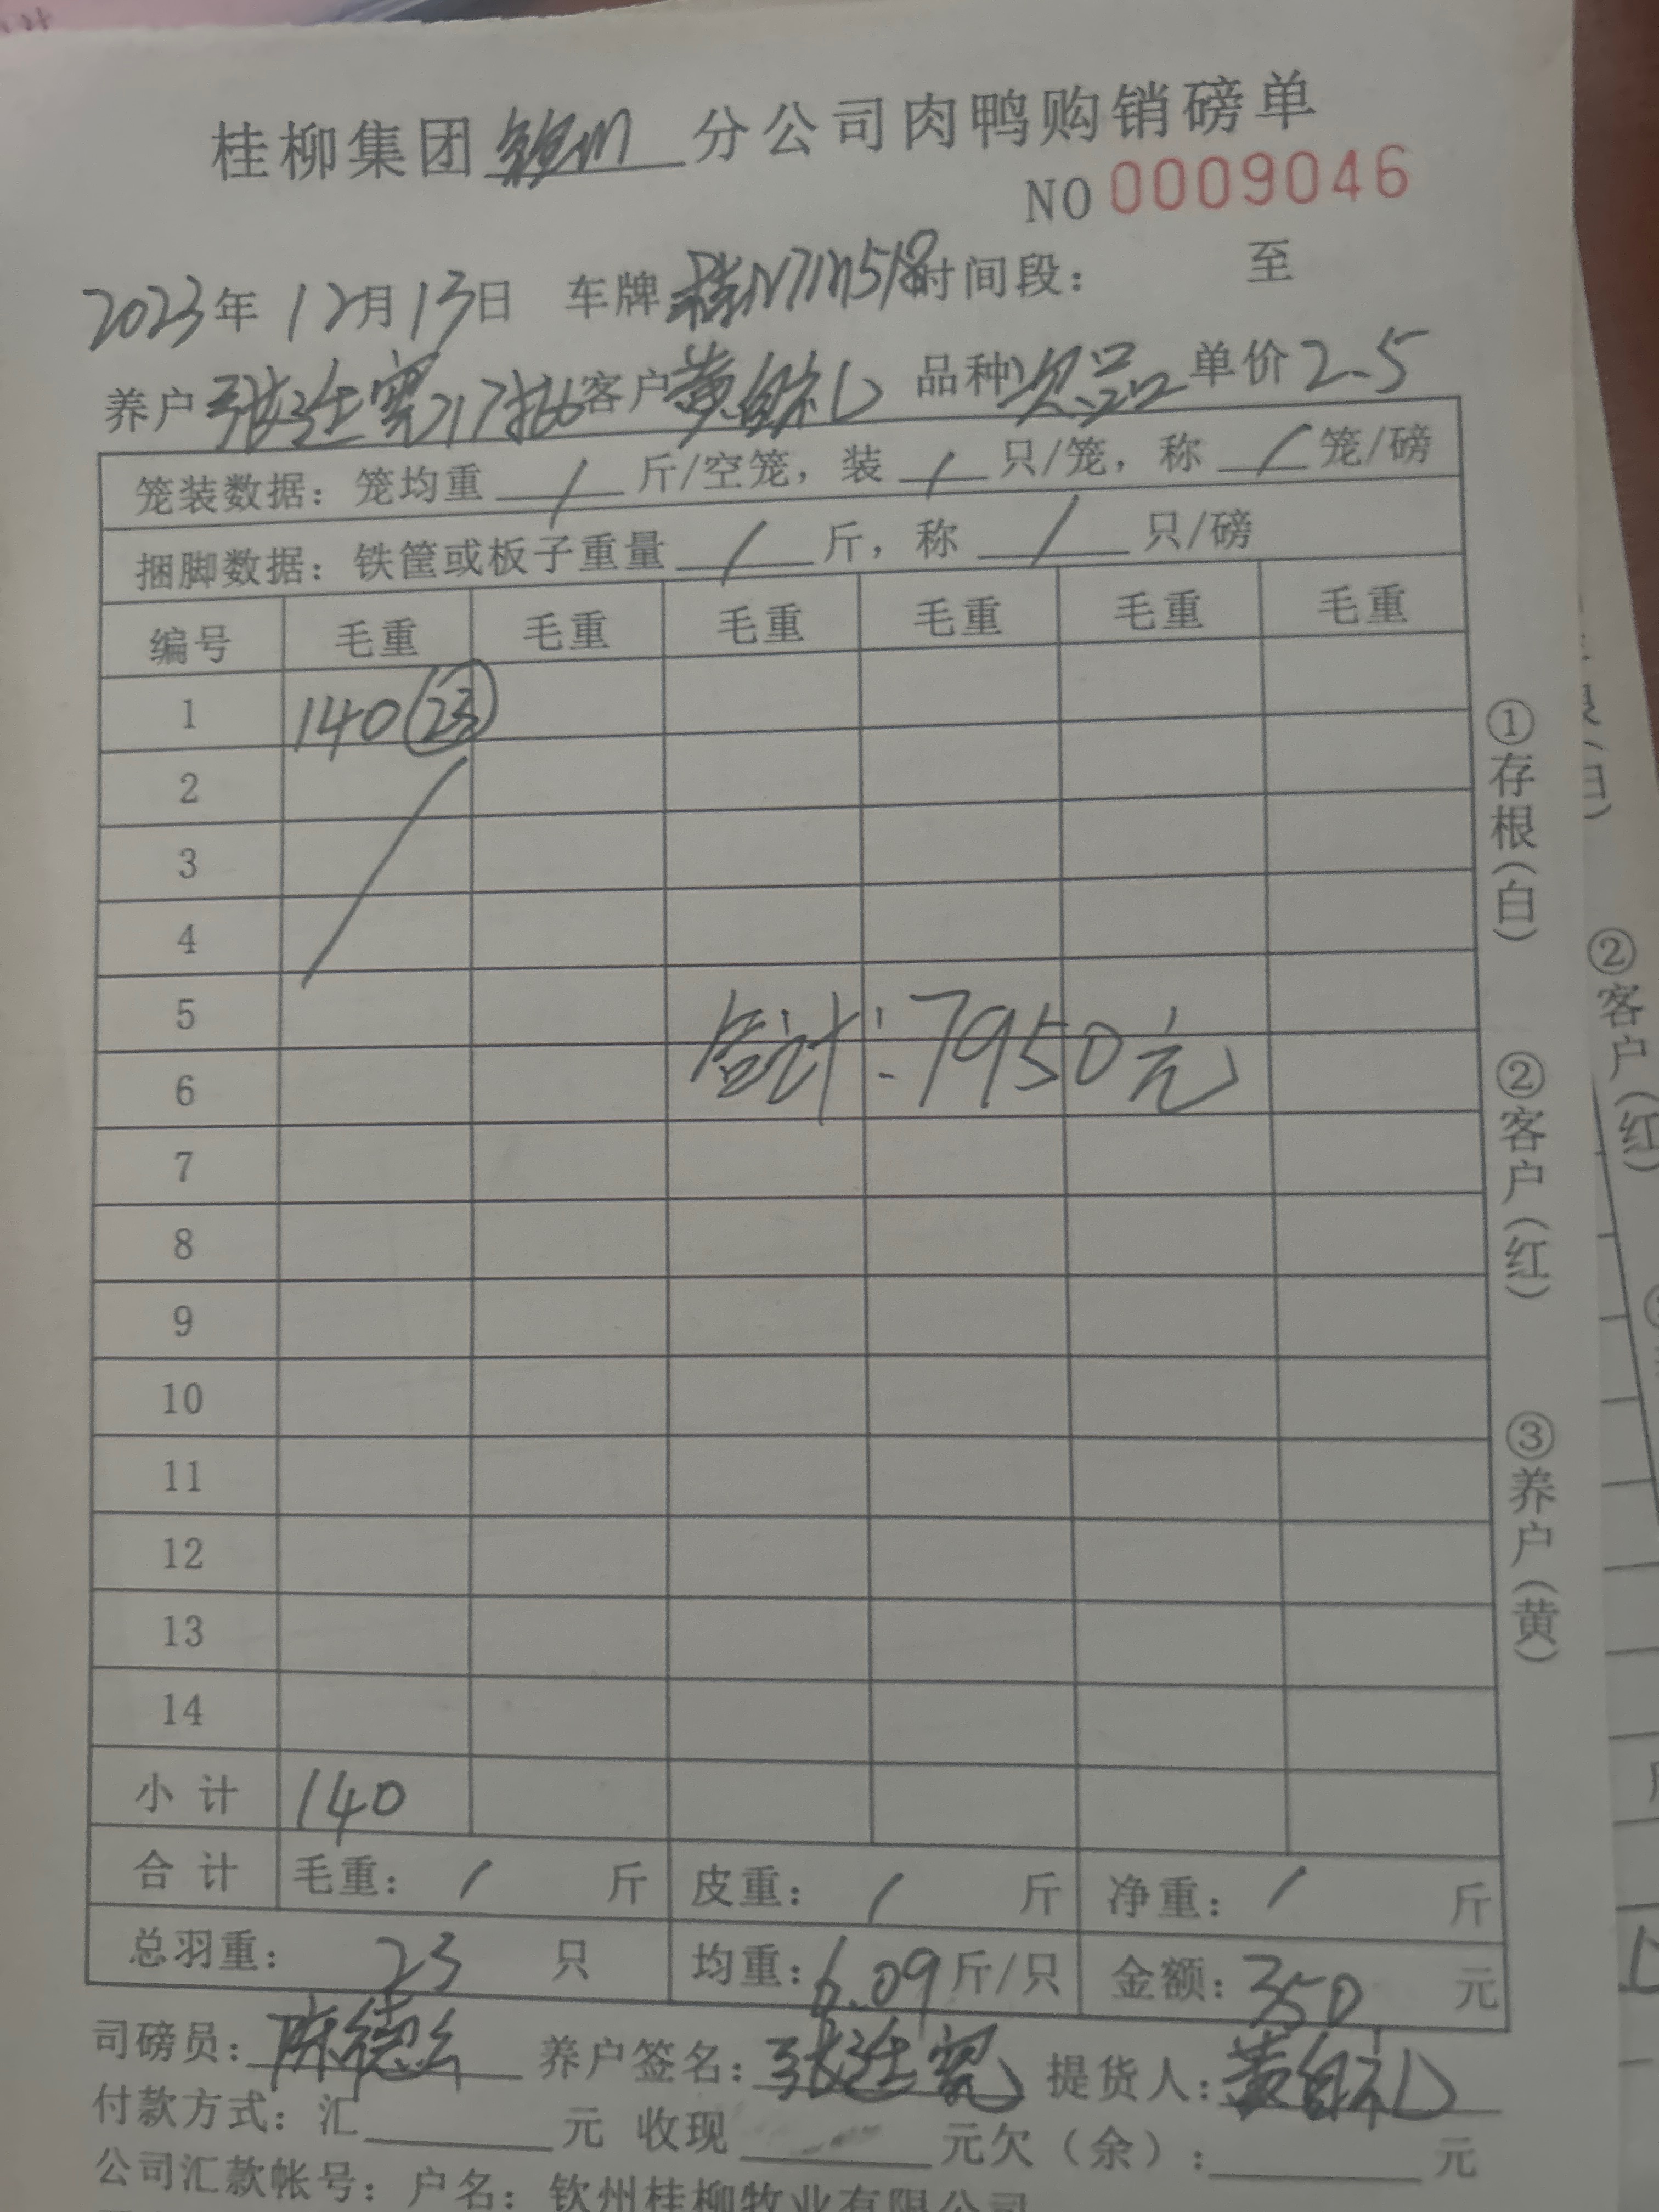 桂柳集团钦州分公司肉鸭购销磅单
NO 0009046
2023年12月13日 车牌桂N7M518时间段： 至
养户 张廷宽217批 客户黄自礼 品种次品单价2.5
笼装数据：笼均重 / 斤/空笼，装 / 只/笼，称 / 笼/磅
捆脚数据：铁筐或板子重量 / 斤，称 / 只/磅
编号 毛重 毛重 毛重 毛重 毛重 毛重
1 140 23
2
3
4
5
合计：7950元
6
7
8
9
10
11
12
13
14
小计 140
合计 毛重： / 斤 皮重： / 斤 净重： / 斤
总羽重： 23 只 均重：6.09斤/只 金额：350 元
司磅员：陈德 养户签名：张廷宽 提货人：黄自礼
付款方式：汇 元 收现 元欠（余）： 元
公司汇款帐号：户名：钦州桂柳牧业有限公司
①存根（白）
②客户（红）
③养户（黄）
②客户（红）